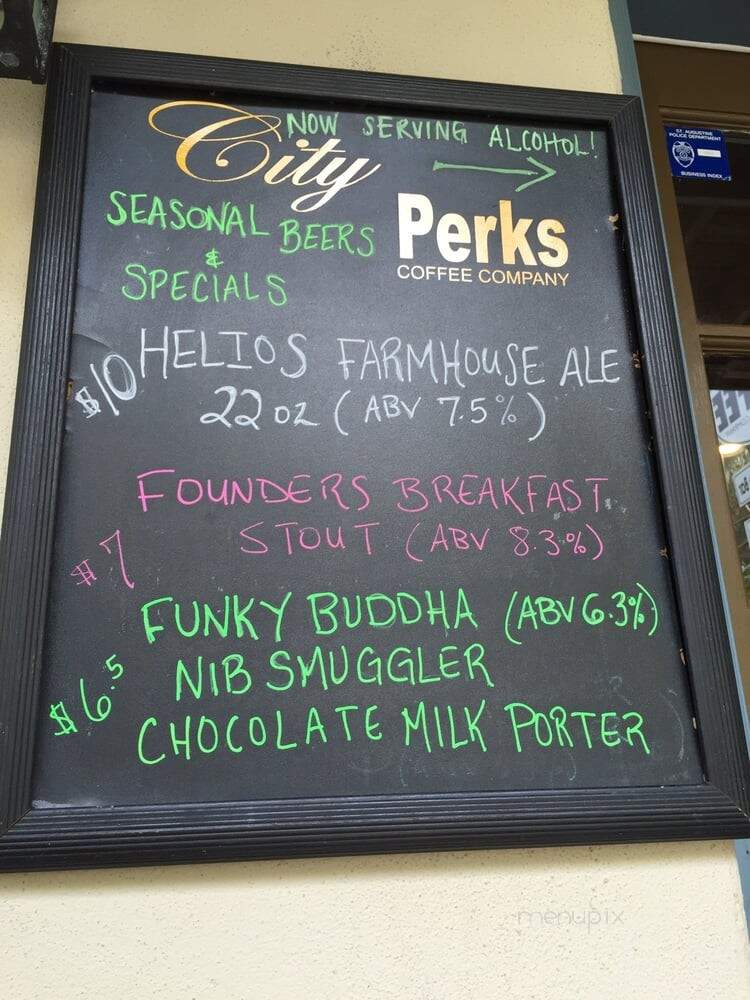 NOW SERVING ALCOHOL!
City
Perks
COFFEE COMPANY
SEASONAL BEERS
&
SPECIALS
$10 HELIOS FARMHOUSE ALE
22 oz (ABV 7.5%)
FOUNDERS BREAKFAST
$7 STOUT (ABV 8.3%)
FUNKY BUDDHA (ABV 6.3%)
$6.5 NIB SMUGGLER
CHOCOLATE MILK PORTER
ST. AUGUSTINE
POLICE DEPARTMENT
BUSINESS INDEX
menupix